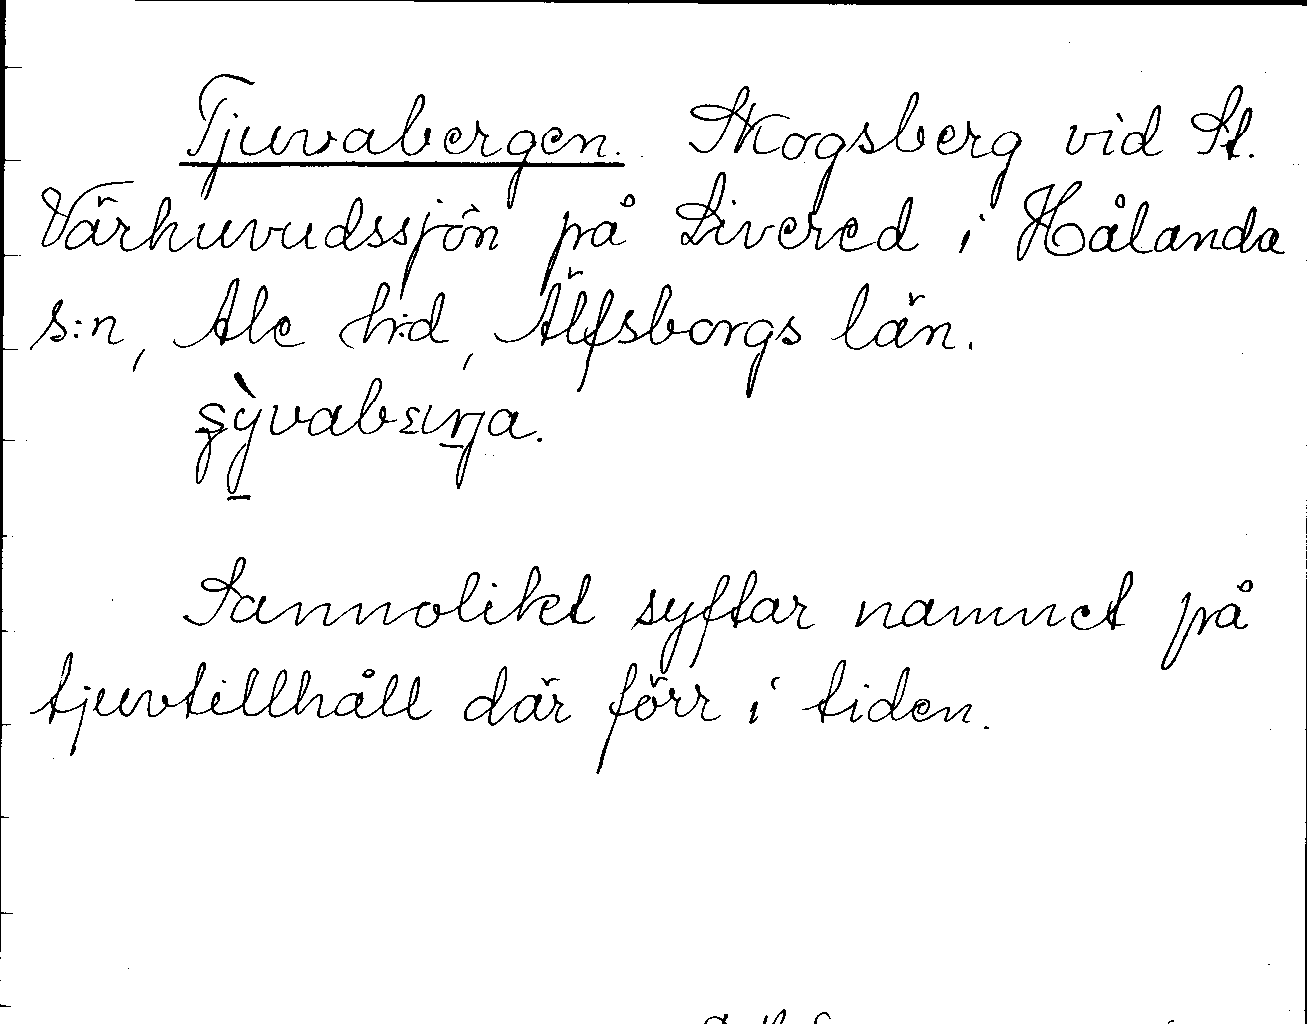 Tjuvabergen. Skogsberg vid St.
Värhuvudssjön på Livered i Hålanda
s:n, Ale h:d, Älfsborgs län.

Sannolikt syftar namnet på
tjuvtillhåll där förr i tiden.